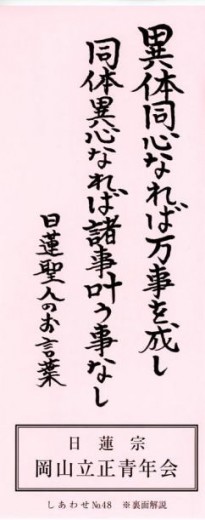 異体同心なれば万事を成し
同体異心なれば諸事叶う事なし
日蓮聖人のお言葉
日蓮宗
岡山立正青年会
しあわせ№48 ※裏面解説